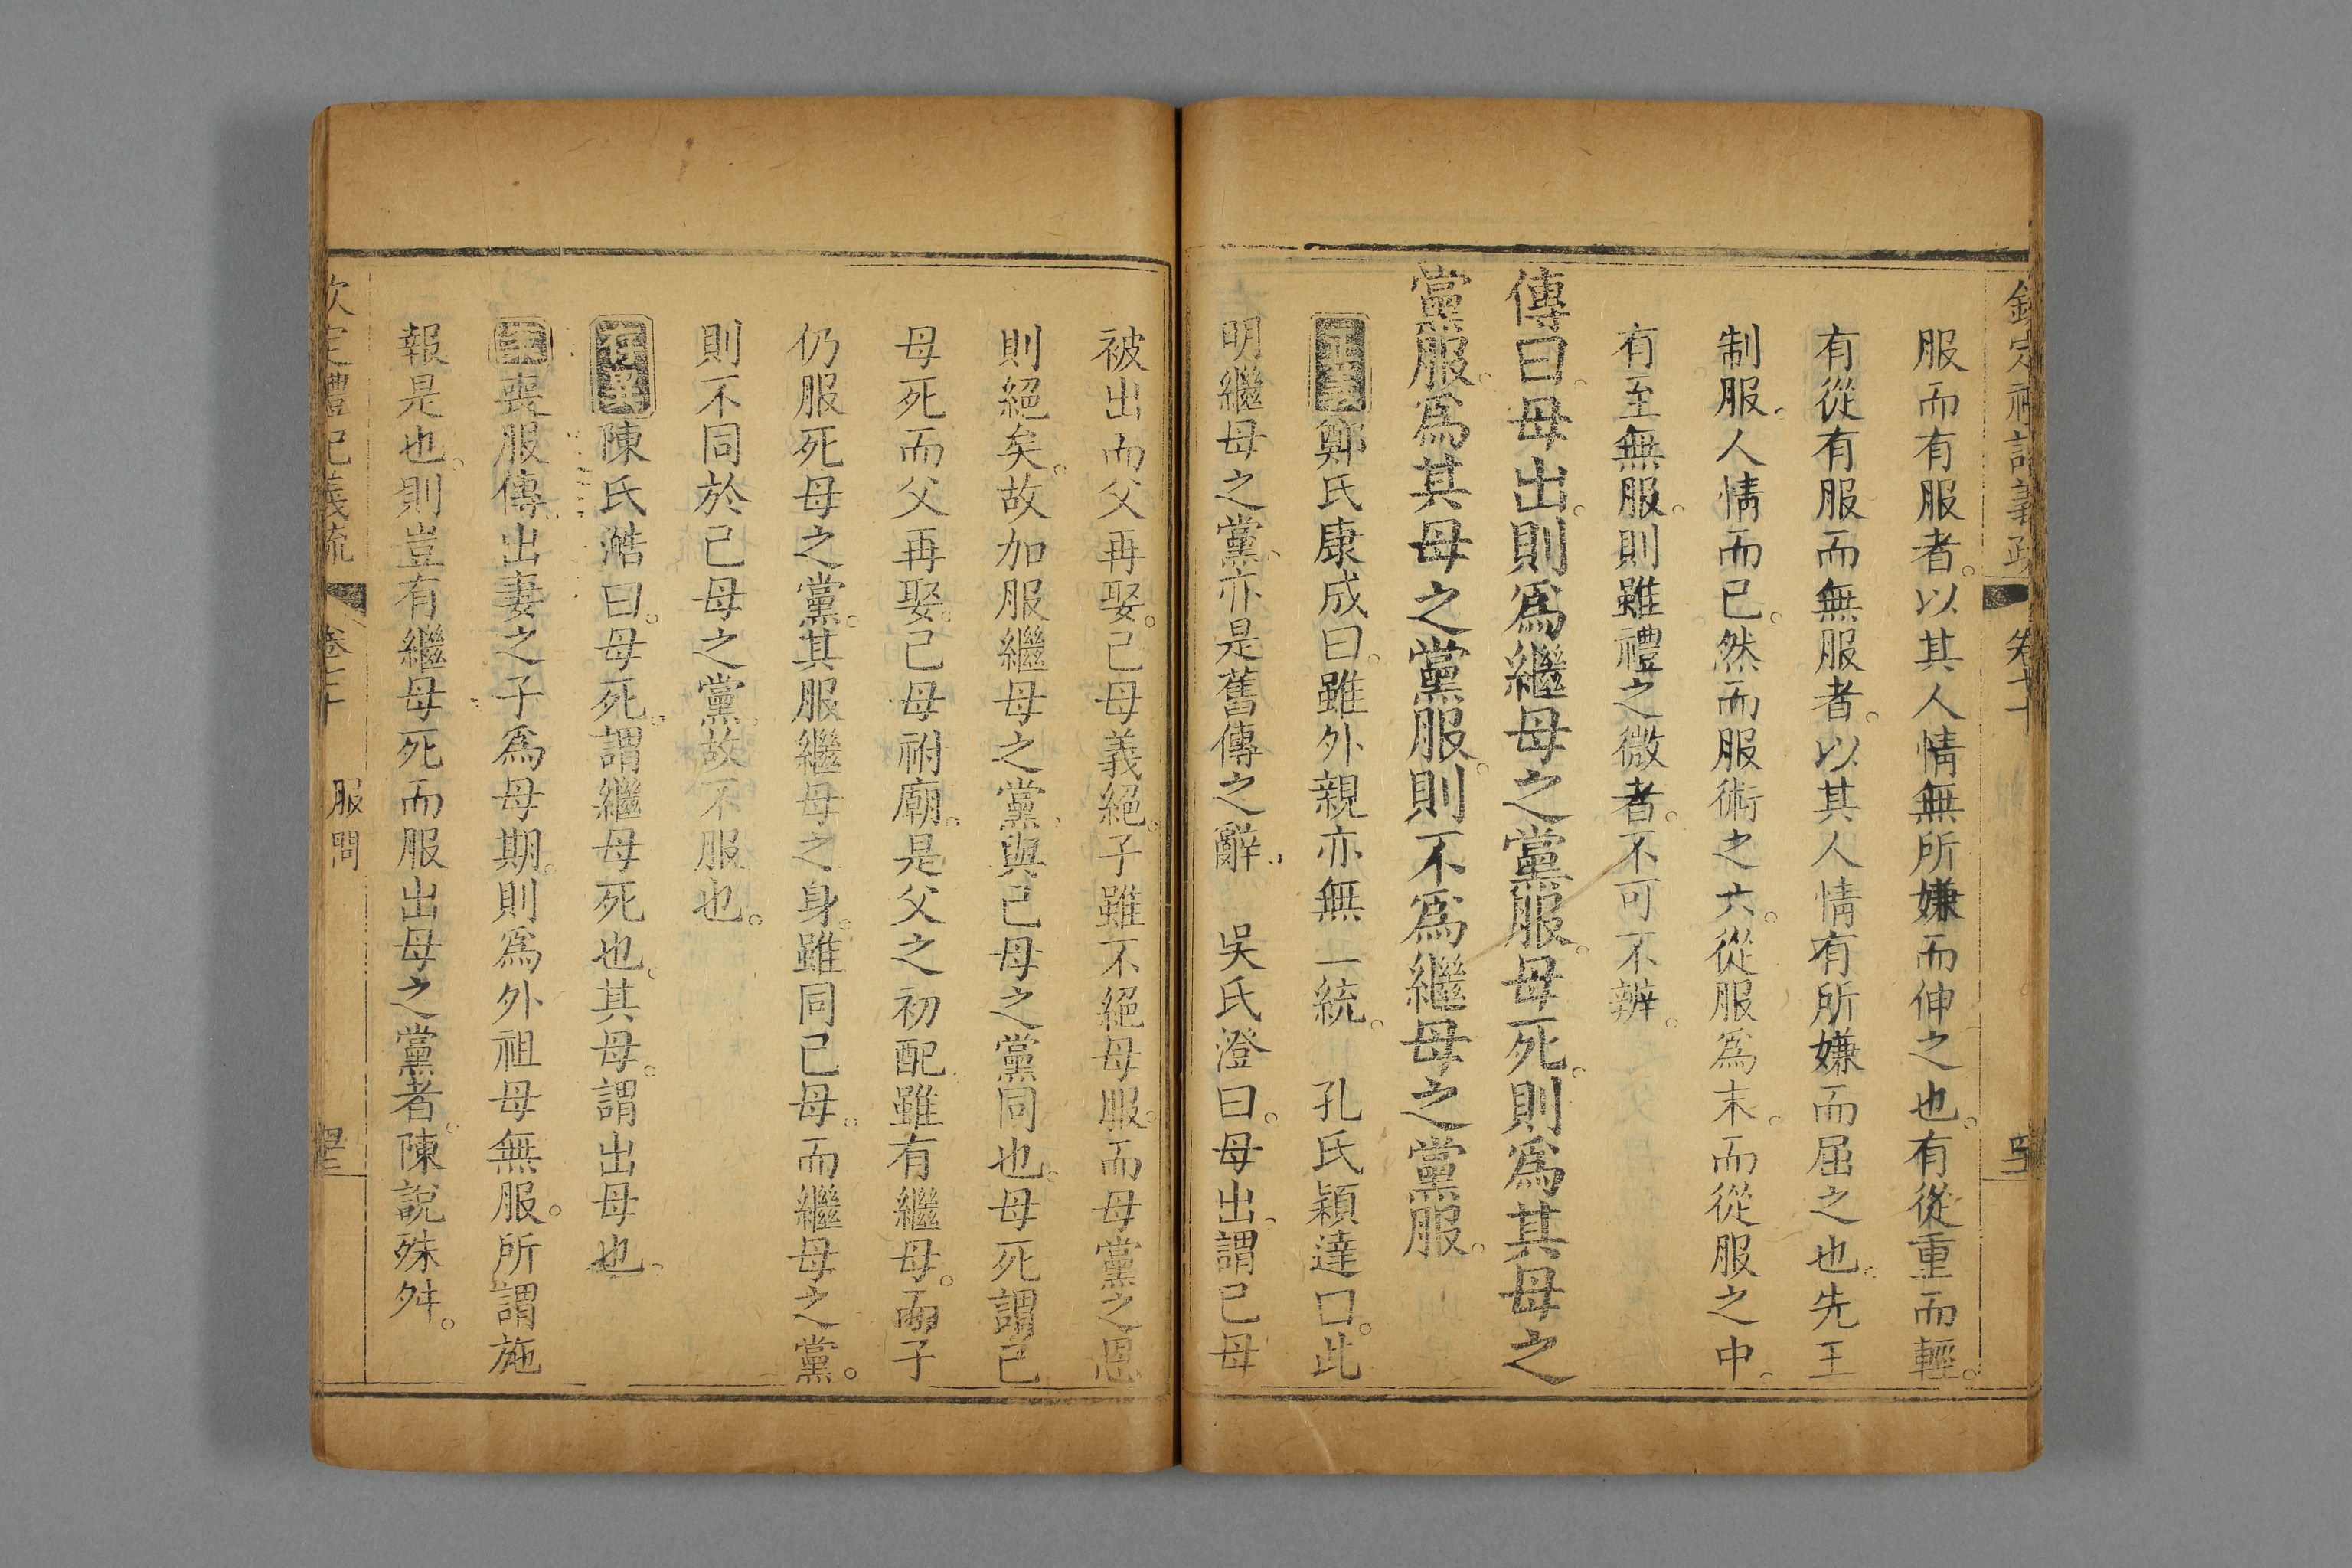 服而有服者。以其人情無所嫌而伸之也。有從重而輕。
有從有服而無服者。以其人情有所嫌而屈之也。先王
制服。人情而已。然而服術之六。從服爲末。而從服之中。
有至無服。則雖禮之微者。不可不辨。
傳曰。母出。則爲繼母之黨服。母死。則爲其母之
黨服。爲其母之黨服。則不爲繼母之黨服。
鄭氏康成曰。雖外親亦無二統。 孔氏穎達曰。此
明繼母之黨、亦是舊傳之辭、 吳氏澄曰。母出、謂已母
被出而父再娶。已母義絕。子雖不絕母服。而母黨之恩
則絕矣。故加服繼母之黨、與已母之黨同也。母死謂已
母死而父再娶。已母祔廟。是父之初配。雖有繼母。而子
仍服死母之黨。其服繼母之身。雖同已母。而繼母之黨。
則不同於已母之黨。故不服也。
存異陳氏澔曰。母死。謂繼母死也。其母。謂出母也。
喪服傳、出妻之子爲母期。則爲外祖母無服。所謂施
報是也。則豈有繼母死而服出母之黨者。陳說殊舛。
欽定禮記義疏 服問